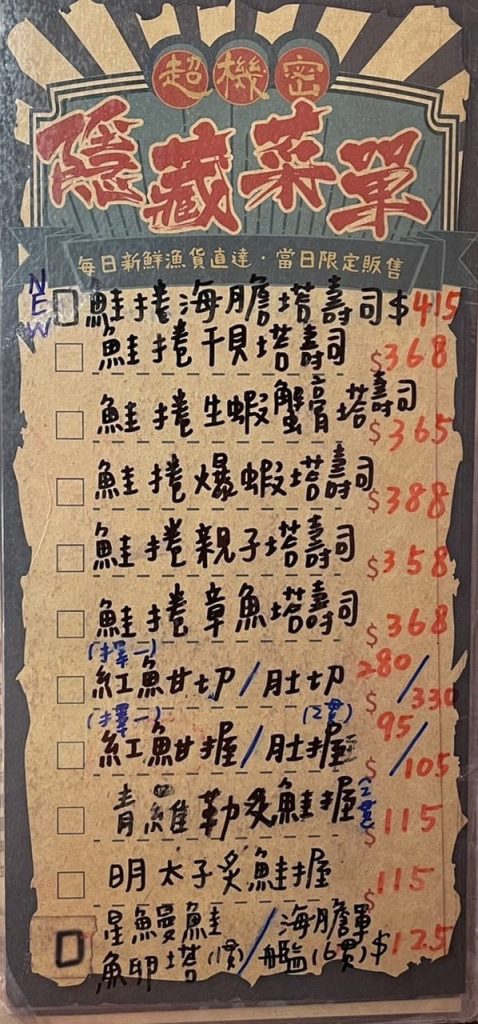 超機密
隱藏菜單
每日新鮮漁貨直達・當日限定販售
NEW 鮭捲海膽塔壽司 $415
鮭捲干貝塔壽司 $368
鮭捲生蝦蟹膏塔壽司 $365
鮭捲爆蝦塔壽司 $388
鮭捲親子塔壽司 $358
鮭捲章魚塔壽司 $368
(擇一)
紅魽切/肚切 $280/330
(擇一) (2貫)
紅魽握/肚握 $95/105
青維勒炙鮭握 (2貫) $115
明太子炙鮭握 $115
星鰻鮭 / 海膽軍
魚卵塔(1貫) 艦(6貫) $125